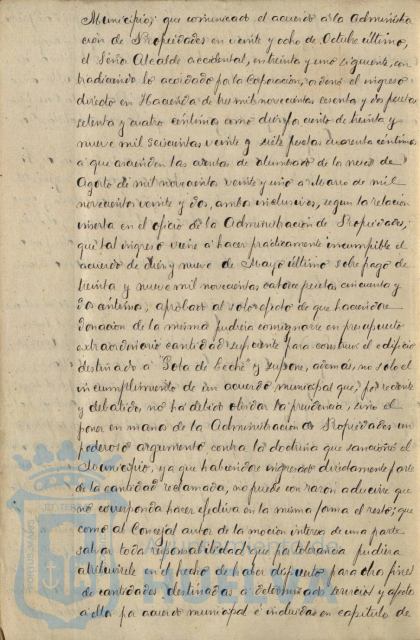 Municipio; que comunicado el acuerdo a la Administra
cion de Propiedades en veinte y ocho de Octubre último,
el Señor Alcalde accidental, en treinta y uno siguiente, con
tradiciendo lo acordado por la Corporacion, ordenó el ingreso
directo en Hacienda de tres mil novecientas sesenta y dos pesetas
setenta y cuatro centimos como diez por ciento de treinta y
nueve mil seiscientas veinte y siete pesetas cuarenta centimos
a que ascienden las cuentas de alumbrado de los meses de
Agosto de mil novecientos veinte y uno a Marzo de mil
novecientos veinte y dos, ambos inclusives, segun la relacion
inserta en el oficio de la Administracion de Propiedades;
que tal ingreso viene á hacer prácticamente incumplible el
acuerdo de diez y nueve de Mayo último sobre pago de
treinta y nueve mil novecientas catorce pesetas cincuenta y
dos centimos, aprobado al solo efecto de que haciendose
donacion de la misma pudiera consignarse en presupuesto
extraordinario cantidad suficiente para construir el edificio
destinado a "Gota de Leche" y supone, además, no solo el
incumplimiento de un acuerdo municipal que, por reciente
y debatido, no ha debido olvidar la presidencia, sino el
poner en manos de la Administracion de Propiedades un
poderoso argumento contra la doctrina que sancionó el
Municipio, ya que habiendose ingresado directamente parte
de la cantidad reclamada, no puede con razon aducirse que
no corresponda hacer efectiva en la misma forma el resto; que
como al Concejal autor de la mocion interesa de una parte
salvar toda responsabilidad que por tolerancia pudiera
atribuirsele en el hecho de haber dispuesto para otros fines
de cantidades destinadas a determinado servicio y afecta
a ello por acuerdo municipal é incluidas en capitulo de